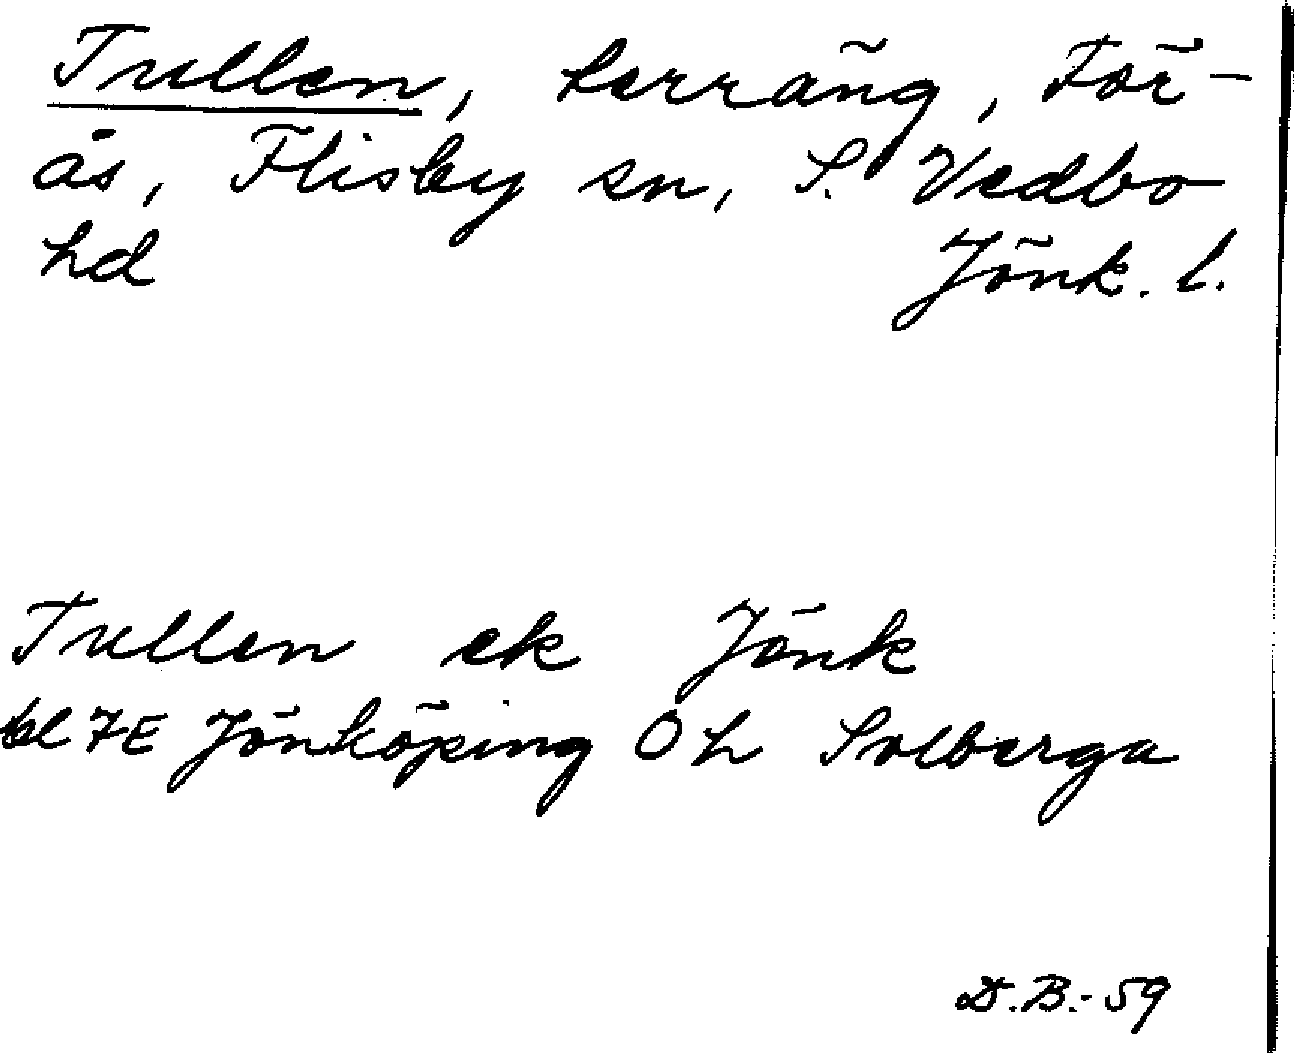 Trullen, terräng, För-
ås, Flisby sn, S. Vedbo
hd Jönk. l.
Trullen ek Jönk
bl 7E Jönköping Ö h Solberga
D.B.-59